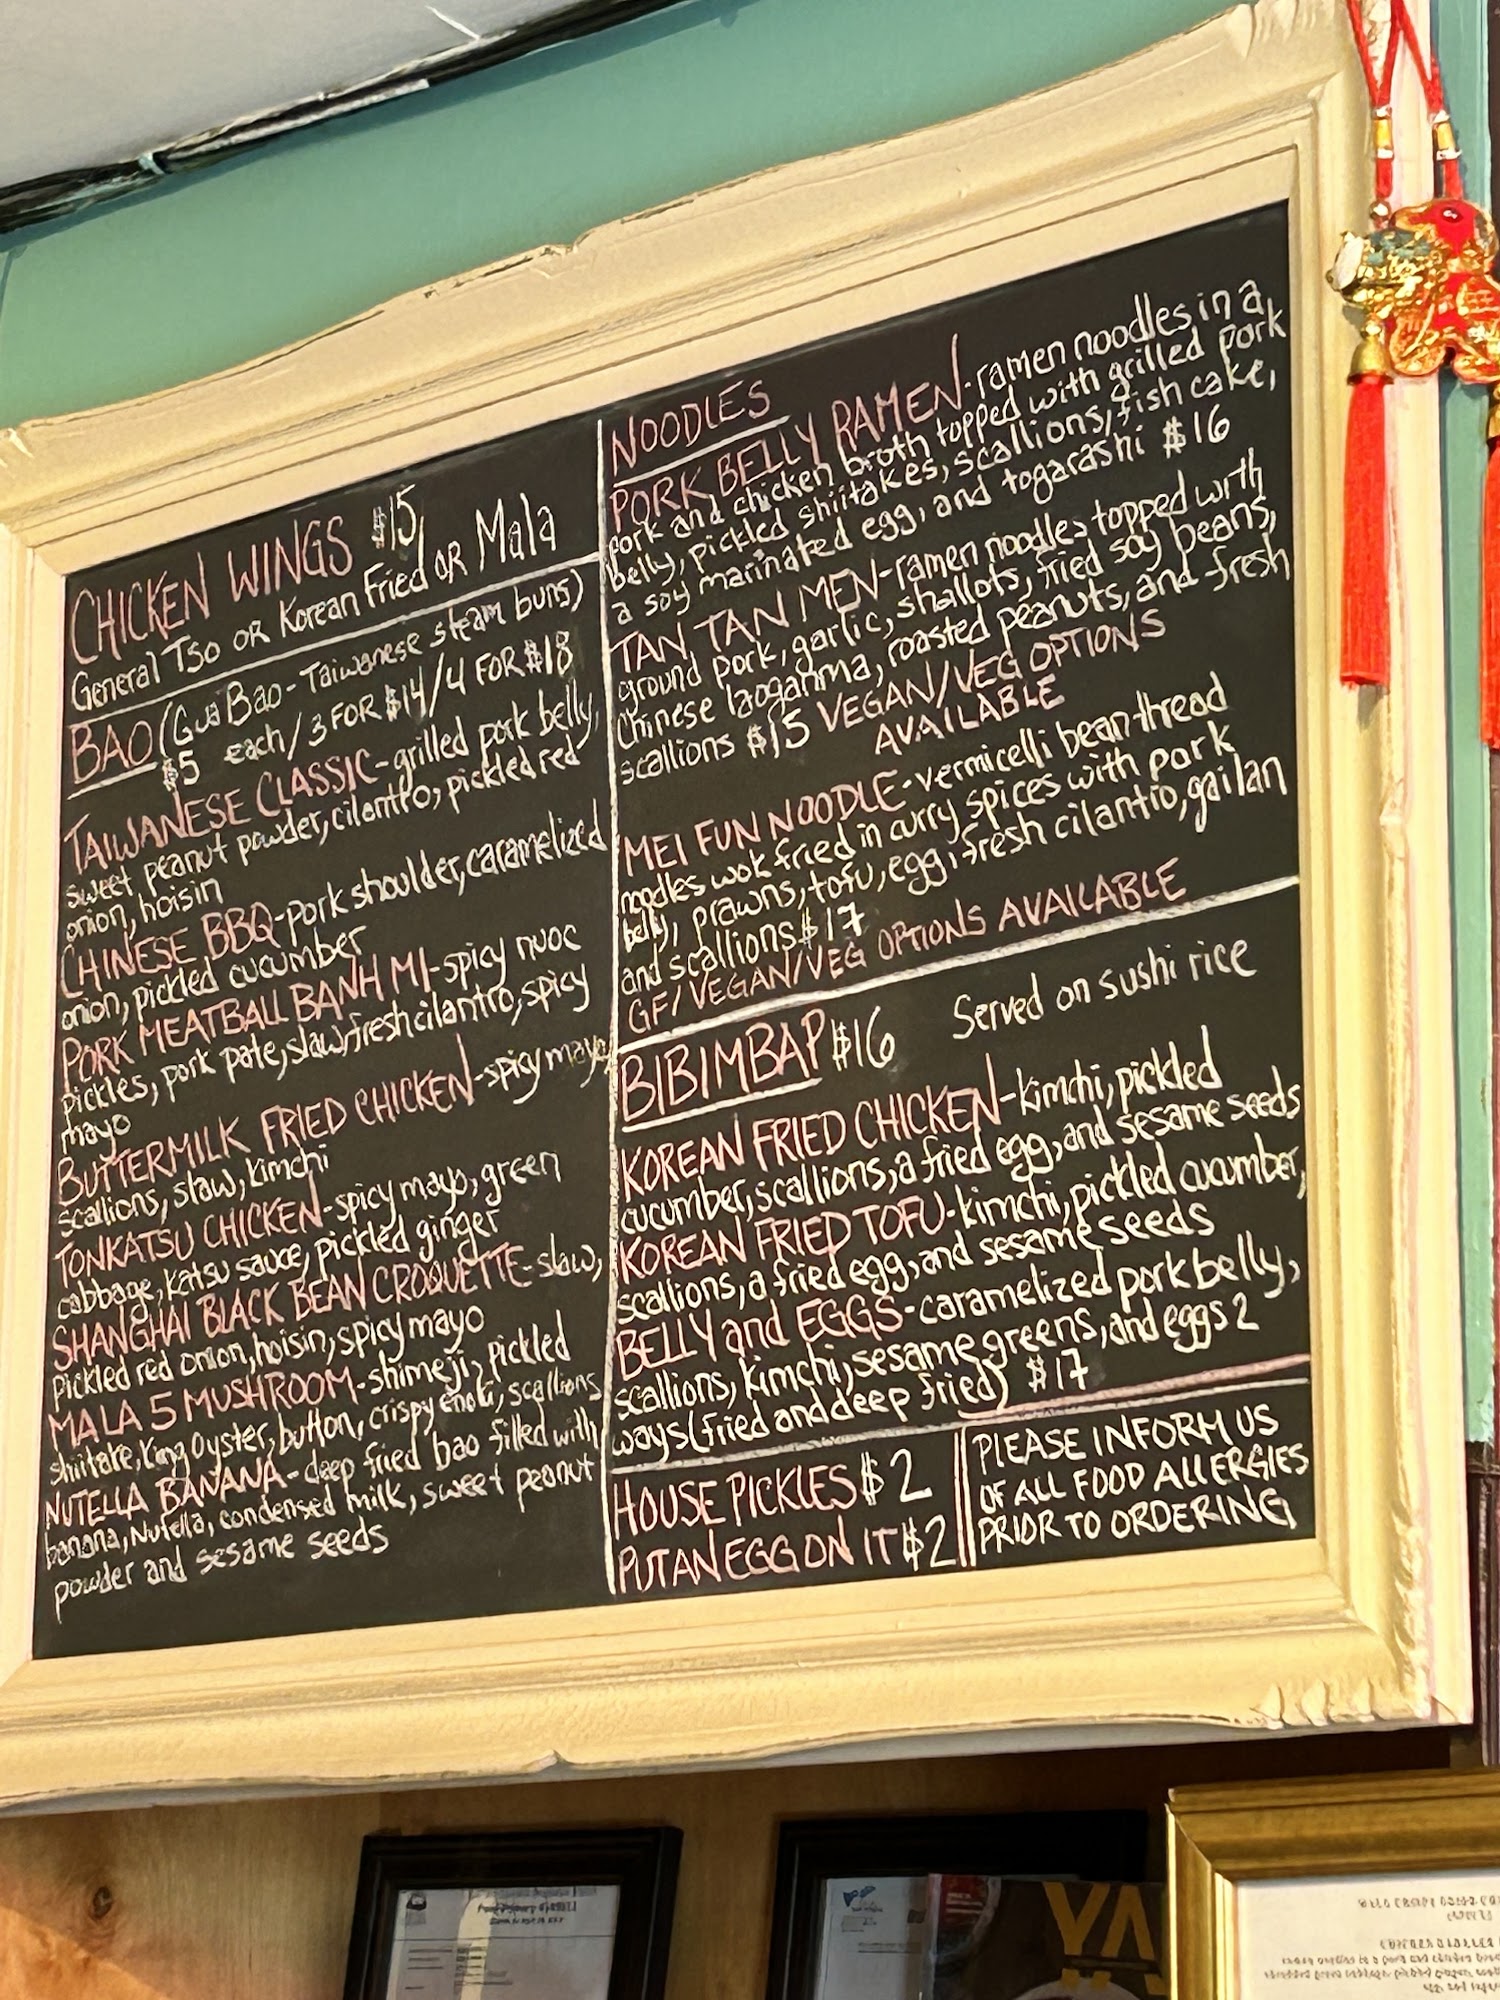 CHICKEN WINGS $15
General Tso OR Korean Fried OR Mala
BAO (Gua Bao - Taiwanese steam buns)
$5 each / 3 FOR $14 / 4 FOR $18
TAIWANESE CLASSIC - grilled pork belly,
sweet peanut powder, cilantro, pickled red
onion, hoisin
CHINESE BBQ - pork shoulder, caramelized
onion, pickled cucumber
PORK MEATBALL BANH MI - spicy nuoc
pickles, pork pate, slaw, fresh cilantro, spicy
mayo
BUTTERMILK FRIED CHICKEN - spicy mayo,
scallions, slaw, kimchi
TONKATSU CHICKEN - spicy mayo, green
cabbage, katsu sauce, pickled ginger
SHANGHAI BLACK BEAN CROQUETTE - slaw,
pickled red onion, hoisin, spicy mayo
MALA 5 MUSHROOM - shimeji, pickled
shiitake, king oyster, button, crispy enoki, scallions
NUTELLA BANANA - deep fried bao filled with
banana, Nutella, condensed milk, sweet peanut
powder and sesame seeds
NOODLES
PORK BELLY RAMEN - ramen noodles in a
pork and chicken broth topped with grilled pork
belly, pickled shiitakes, scallions, fish cake,
a soy marinated egg, and togarashi $16
TAN TAN MEN - ramen noodles topped with
ground pork, garlic, shallots, fried soy beans,
Chinese laoganma, roasted peanuts, and fresh
scallions $15 VEGAN/VEG OPTIONS
AVAILABLE
MEI FUN NOODLE - vermicelli bean thread
noodles wok fried in curry spices with pork
belly, prawns, tofu, egg, fresh cilantro, gailan
and scallions $17
GF/VEGAN/VEG OPTIONS AVAILABLE
BIBIMBAP $16 Served on sushi rice
KOREAN FRIED CHICKEN - kimchi, pickled
cucumber, scallions, a fried egg, and sesame seeds
KOREAN FRIED TOFU - kimchi, pickled cucumber,
scallions, a fried egg, and sesame seeds
BELLY and EGGS - caramelized pork belly,
scallions, kimchi, sesame greens, and eggs 2
ways (fried and deep fried) $17
HOUSE PICKLES $2
PUT AN EGG ON IT $2
PLEASE INFORM US
OF ALL FOOD ALLERGIES
PRIOR TO ORDERING
YA